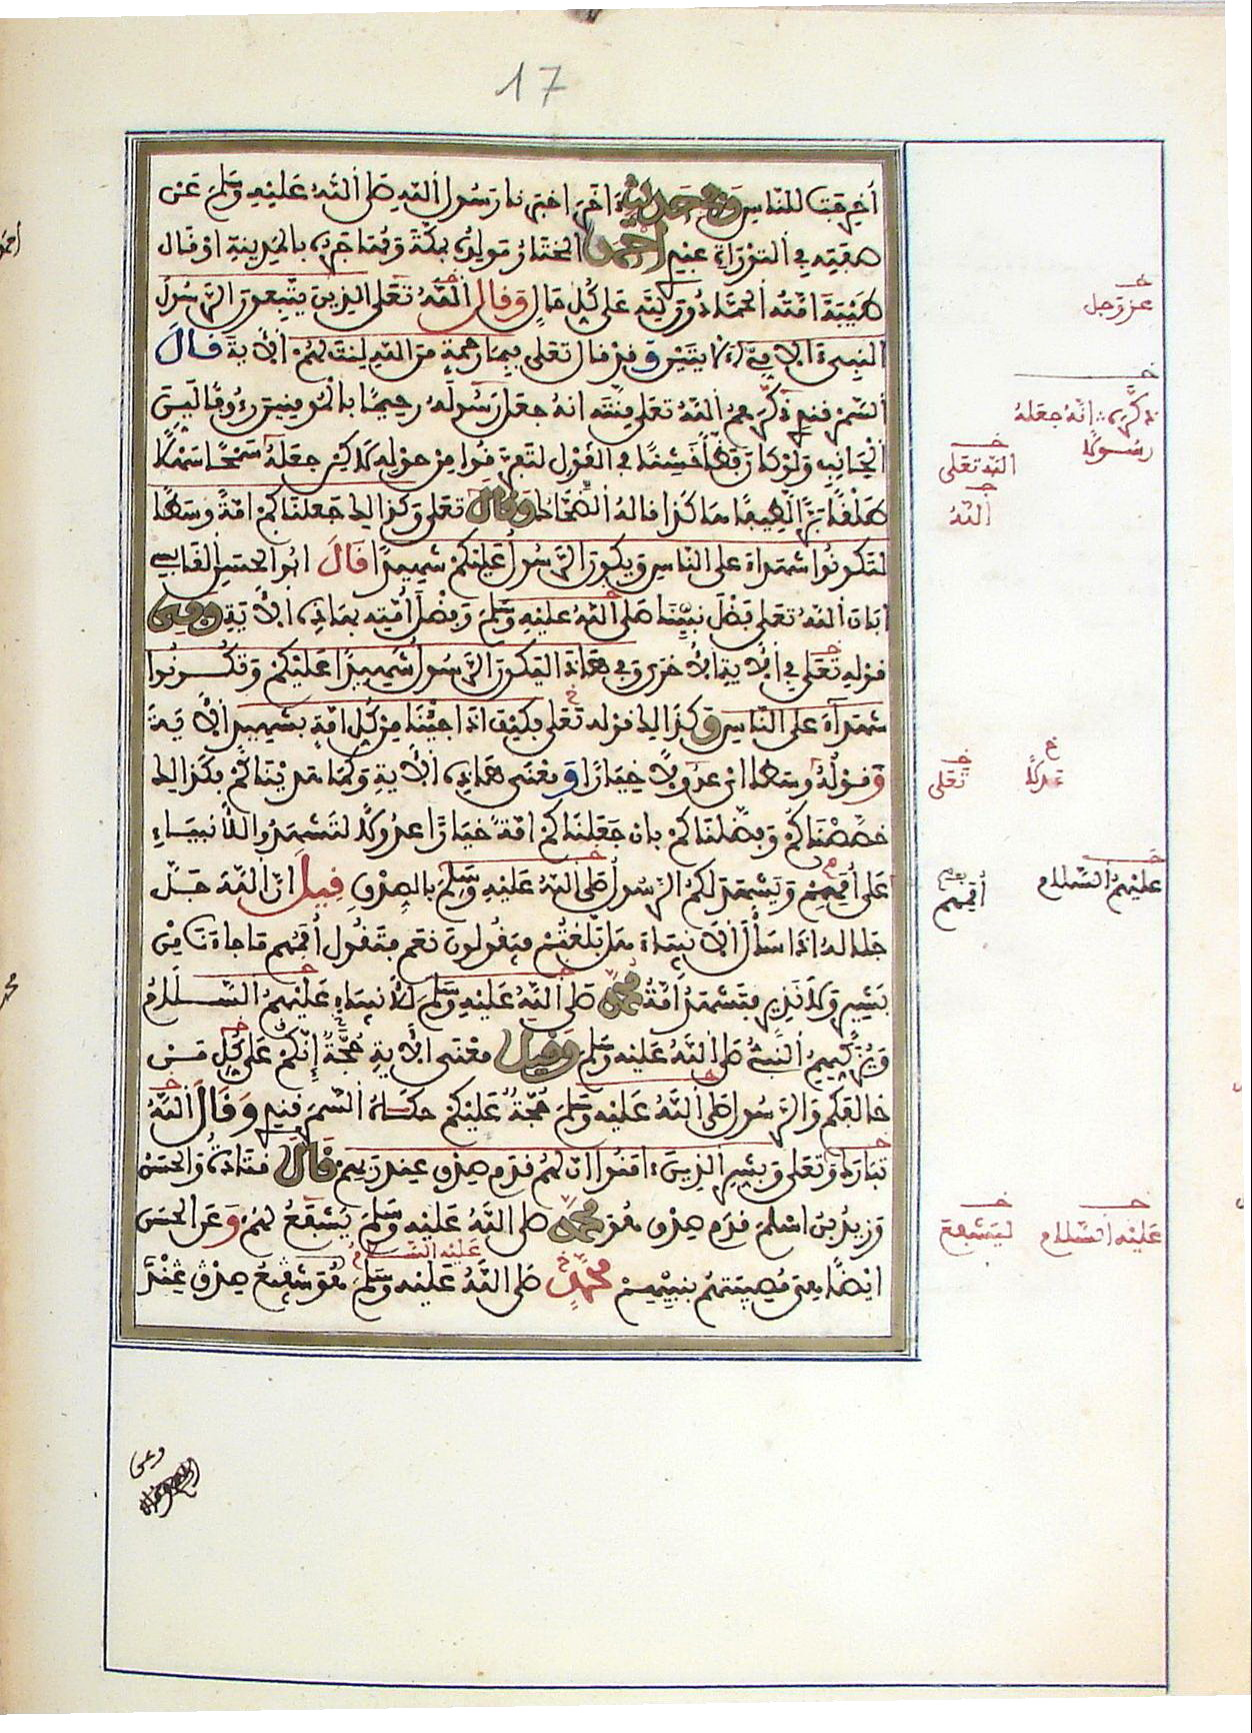 17
أخرجت للناس وفي حديث ءاخر اخبرنا رسول الله صلى الله عليه وسلم عن
صفته في التوراة عبدي احمد المختار مولده بمكة ومهاجره بالمدينة او قال
طيبة امته الحمادون لله على كل حال وقال الله تعلى الذين يتبعون الرسول
النبيء الامي الايتين وقد قال تعلى فبما رحمة من الله لنت لهم الأية قال
السمرقندي ذكرهم الله تعلى منته انه جعل رسوله رحيما بالمومنين رءوفا لين
الجانب ولو كان فظا خشنا في القول لتفرقوا من حوله لاكن جعله سمحا سهلا
طلقا برا لطيفا هاكذا قاله الضحاك وقال تعلى وكذالك جعلناكم امة وسطا
لتكونوا شهداء على الناس ويكون الرسول عليكم شهيدا قال ابو الحسن القابسي
ابان الله تعلى فضل نبينا صلى الله عليه وسلم وفضل أمته بهاذه الأية وفي
قوله تعلى في الأية الأخرى وفي هاذا ليكون الرسول شهيدا عليكم وتكونوا
شهداء على الناس وكذالك قوله تعلى فكيف اذا جئنا من كل امة بشهيد الأية
وقوله وسطا اى عدولا خيارا ومعنى هاذه الأية وكما هديناكم فكذالك
خصصناكم وفضلناكم بان جعلناكم امة خيارا عدولا لتشهدوا للأنبياء
على أممهم ويشهد لكم الرسول صلى الله عليه وسلم بالصدق قيل ان الله جل
جلاله اذا سأل الانبياء هل بلغتم فيقولون نعم فتقول أممهم ما جاءنا من
بشير ولا نذير فتشهد أمة محمد صلى الله عليه وسلم للأنبياء عليهم السلام
ويزكيهم النبيء صلى الله عليه وسلم وقيل معنى الأية إنكم حجة على كل من
خالفكم والرسول صلى الله عليه وسلم حجة عليكم حكاه السمرقندي وقال الله
تبارك وتعلى وبشر الذين ءامنوا ان لهم قدم صدق عند ربهم قال قتادة والحسن
وزيد بن اسلم قدم صدق هو محمد صلى الله عليه وسلم يشفع لهم وعن الحسن
عليه السلام
ايضا هي مصيبتهم بنبيهم محمد صلى الله عليه وسلم هو شفيع صدق عند
عز وجل
ذكرهم
انه جعله
رسولا
الله تعلى
الله
عدلا
تعلى
عليهم السلام
أممهم
عليه السلام
ليشفع
وعن